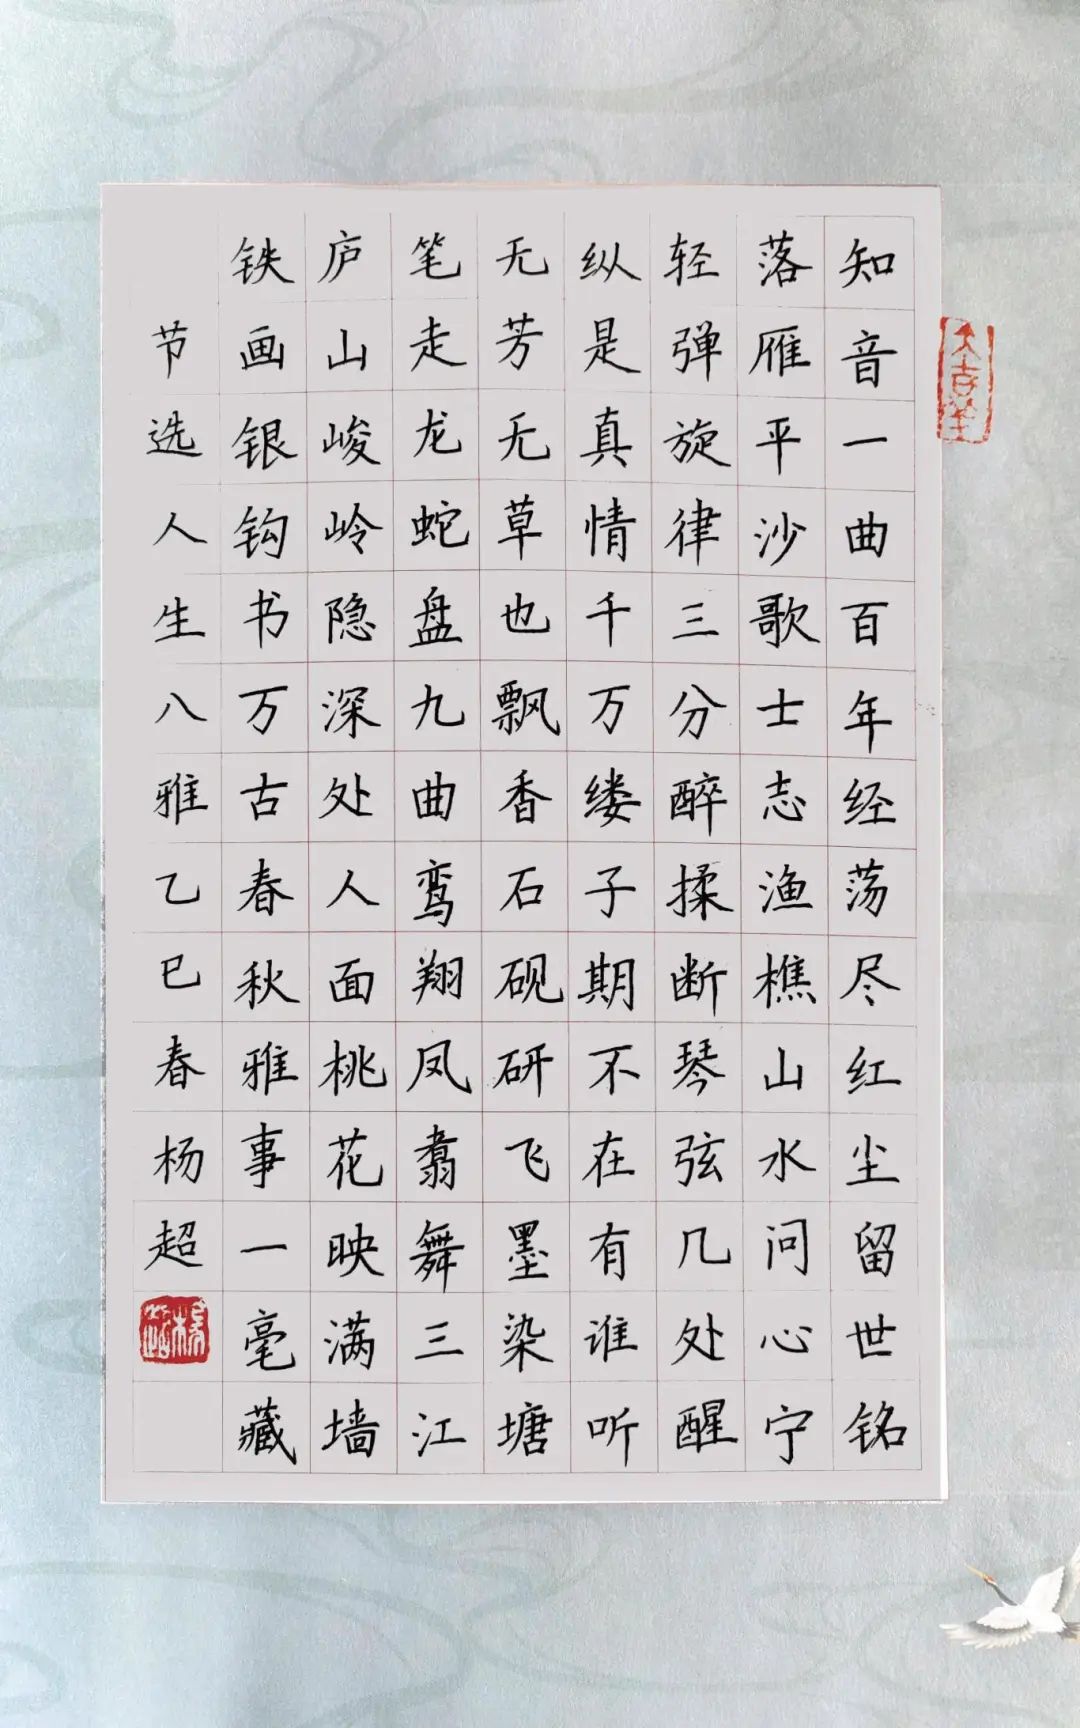 知音一曲百年经荡尽红尘留世铭
落雁平沙歌士志渔樵山水问心宁
轻弹旋律三分醉揉断琴弦几处醒
纵是真情千万缕子期不在有谁听
无芳无草也飘香石砚研飞墨染塘
笔走龙蛇盘九曲鸾翔凤翥舞三江
庐山峻岭隐深处人面桃花映满墙
铁画银钩书万古春秋雅事一毫藏
节选人生八雅乙巳春杨超